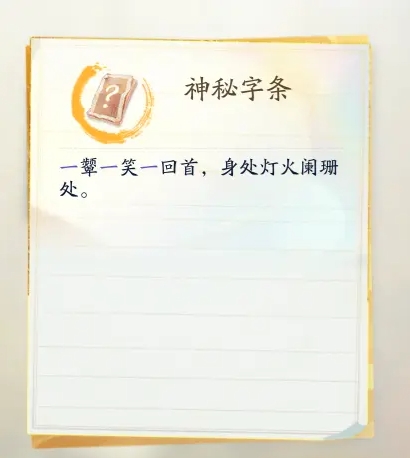 神秘字条
一颦一笑一回首，身处灯火阑珊
处。